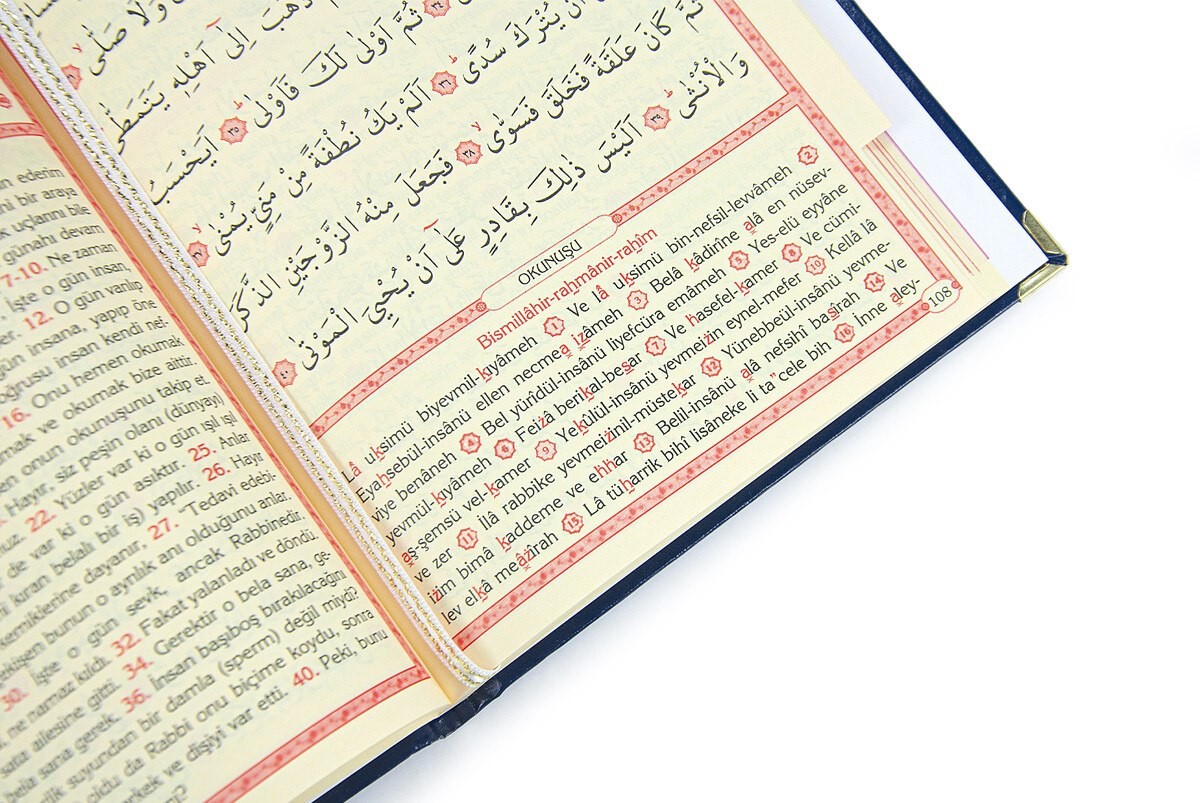 وَلَا صَلّٰى
ذَهَبَ اِلٰٓى اَهْلِه۪ يَتَمَطّٰى
ثُمَّ اَوْلٰى لَكَ فَاَوْلٰى ﴿٣٥﴾ اَيَحْسَبُ
اَنْ يُتْرَكَ سُدًى ﴿٣٦﴾ اَلَمْ يَكُ نُطْفَةً مِنْ مَنِيٍّ يُمْنٰى ﴿٣٧﴾
ثُمَّ كَانَ عَلَقَةً فَخَلَقَ فَسَوّٰى ﴿٣٨﴾ فَجَعَلَ مِنْهُ الزَّوْجَيْنِ الذَّكَرَ
وَالْاُنْثٰى ﴿٣٩﴾ اَلَيْسَ ذٰلِكَ بِقَادِرٍ عَلٰٓى اَنْ يُحْيِيَ الْمَوْتٰى ﴿٤٠﴾
OKUNUŞU
Bismillâhir-raḥmânir-raḥîm
Lâ uksimü biyevmil-kıyâmeh 1 Ve lâ uksimü bin-nefsil-levvâmeh 2
Eyahsebül-insânü ellen necmea izâmeh 3 Belâ kâdirîne alâ en nüsev-
viye benâneh 4 Bel yürîdül-insânü liyefcüra emâmeh 5 Yes-elü eyyâne
yevmül-kıyâmeh 6 Feizâ berikal-besar 7 Ve hasefel-kamer 8 Ve cümi-
aş-şemsü vel-kamer 9 Yekûlül-insânü yevmeizin eynel-mefer 10 Kellâ lâ
ve zer 11 İlâ rabbike yevmeizinil-müstekar 12 Yünebbeül-insânü yevme-
izim bimâ kaddeme ve ehhar 13 Belil-insânü alâ nefsihî basîrah 14 Ve
lev elkâ meâzîrah 15 Lâ tüharrik bihî lisâneke li ta"cele bih 16 İnne aley-
108
ederim
ni bir araya
k uçlarını bile
günahı devam
7-10. Ne zaman
İşte o gün insan,
12. O gün varılıp
gün insana, yapıp öne
oğrusu insan kendi nef-
16. Onu hemen okumak
mak ve okumak bize aittir.
en onun okunuşunu takip et.
Hayır, siz peşin olanı (dünyayı)
22. Yüzler var ki o gün ışıl ışıl
de var ki o gün asıktır. 25. Anlar
kıran belalı bir iş) yapılır. 26. Hayır
kemiklerine dayanır, 27. "Tedavi edebi-
bunun o ayrılık anı olduğunu anlar.
30. İşte o gün sevk, ancak Rabbinedir.
ne namaz kıldı. 32. Fakat yalanladı ve döndü.
ailesine gitti. 34. Gerektir o bela sana, ge-
bela sana gerek. 36. İnsan başıboş bırakılacağını
suyundan bir damla (sperm) değil miydi?
oldu da Rabbi onu biçime koydu, sonra
erkek ve dişiyi var etti. 40. Peki, bunu